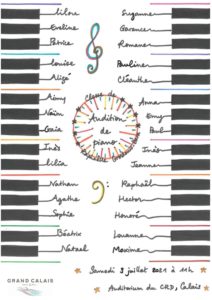 Lilou
Eveline
Patrice
Louise
Aligé
Suzanne
Garance
Romane
Pauline
Cléanthe
Classe de
Audition
de
piano
Aimy
Naïm
Gaïa
Inès
Lilia
Anna
Emy
Paul
Inès
Joanne
Nathan
Agathe
Sophie
Béatrix
Natael
Raphaël
Hector
Honoré
Louanne
Maxime
Samedi 3 juillet 2021 à 11h
Auditorium du CRD, Calais
GRAND CALAIS